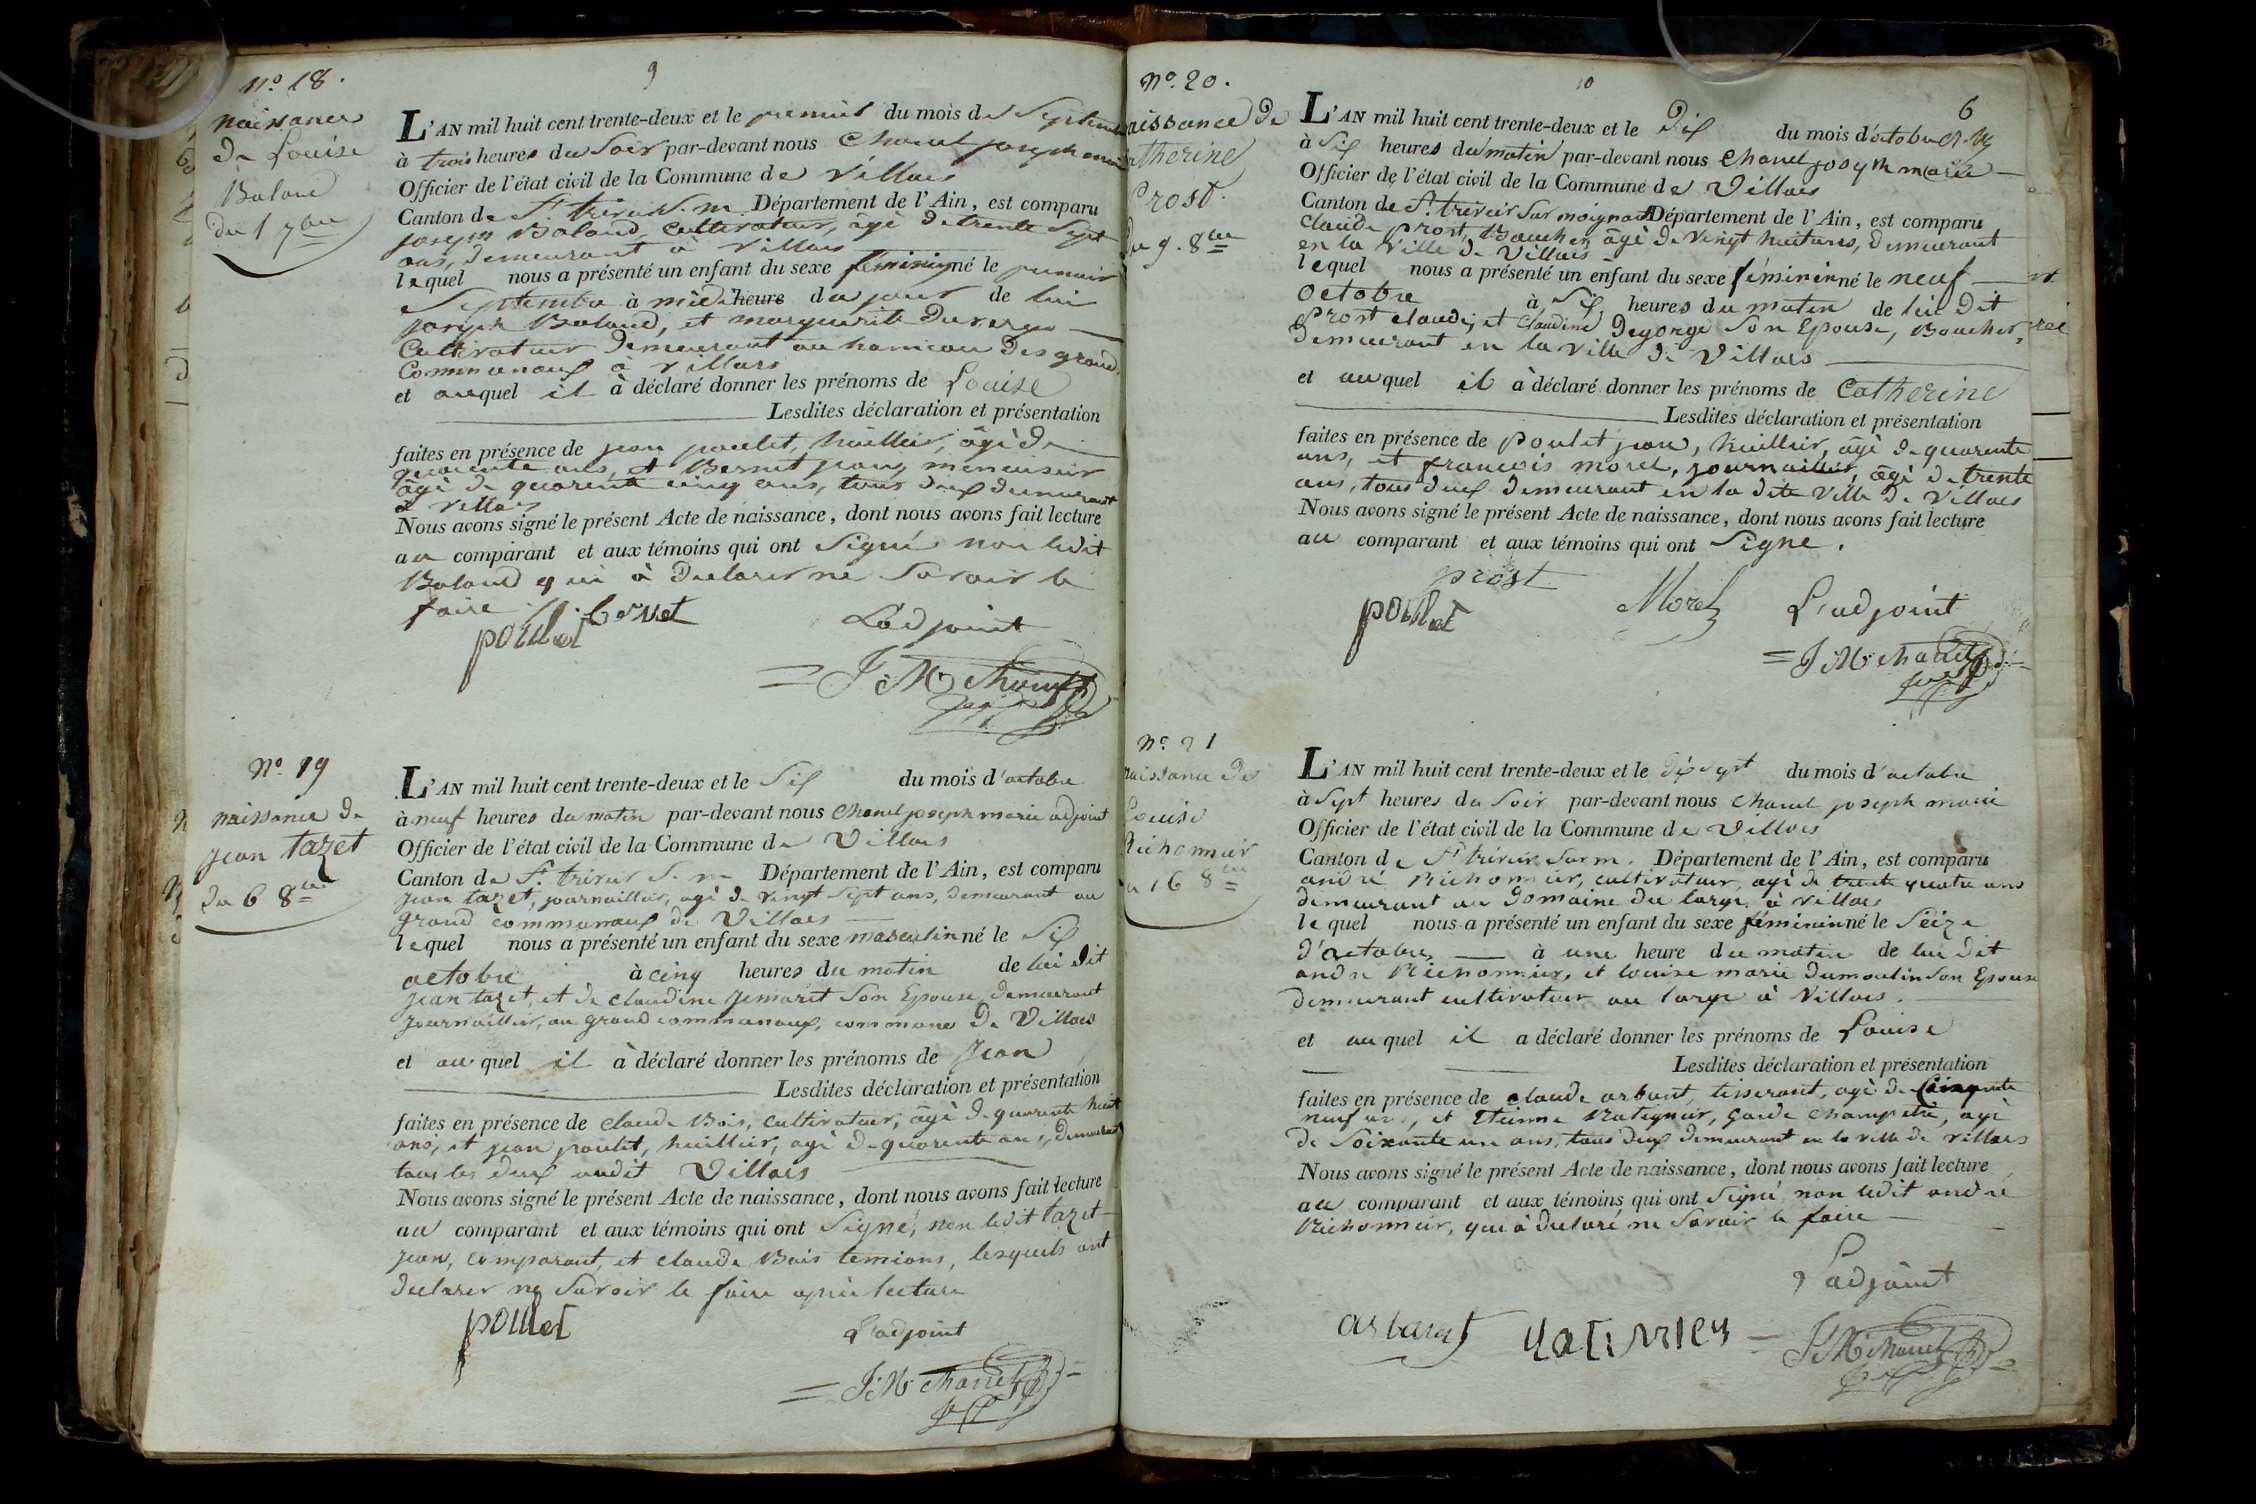 9
N.º 18.
naissance
de Louise
Baland
du 1 7bre
L'AN mil huit cent trente-deux et le premier du mois de Septembre
à trois heures du Soir par-devant nous Chanel joseph marie
Officier de l'état civil de la Commune de Villars
Canton de St. trivier S. m. Département de l'Ain, est comparu
joseph Baland, cultivateur, âgé de trente Sept
ans, demeurant à Villars
lequel nous a présenté un enfant du sexe féminin né le premier
Septembre à midi heure du jour de lui
joseph Baland, et marguerite
Cultivateur demeurant au hameau des grand
Communaux à villars
et auquel il à déclaré donner les prénoms de Louise
Lesdites déclaration et présentation
faites en présence de jean poulet, huillier, âgé de
quarente ans, et Bernet jean, menuisier
âgé de quarente cinq ans, tous deux demeurant
à villars
Nous avons signé le présent Acte de naissance, dont nous avons fait lecture
au comparant et aux témoins qui ont Signé non ledit
Baland qui à declarer ne Savoir le
faire
poulet bernet L'adjoint
J. M. Chanel
N.º 19
naissance de
jean tazet
du 6 8bre
L'AN mil huit cent trente-deux et le Six du mois d'octobre
à neuf heures du matin par-devant nous Chanel joseph marie adjoint
Officier de l'état civil de la Commune de Villars
Canton de St. trivier S. m Département de l'Ain, est comparu
jean tazet, journaillier, agé de vingt Sept ans, demeurant au
grand communaux de Villars
lequel nous a présenté un enfant du sexe masculin né le Six
octobre à cinq heures du matin de lui dit
jean tazet, et de claudine jemaret Son Epouse, demeurant
journaillier, au grand communaux, commune de Villars
et au quel il à déclaré donner les prénoms de Jean
Lesdites déclaration et présentation
faites en présence de claude Bois, cultivateur, âgé de quarente huit
ans, et jean poulet, huillier, agé de quarente ans, demeurant
tous les deux audit Villars
Nous avons signé le présent Acte de naissance, dont nous avons fait lecture
au comparant et aux témoins qui ont Signé, non ledit tazet
jean, comparant, et claude Bois temions, lesquels ont
declarer ne Savoir le faire après lecture
poulet L'adjoint
J. M. chanel
10
6
N.º 20.
aissance de
atherine
Prost.
du 9. 8bre
L'AN mil huit cent trente-deux et le dix du mois d'octobre
à Six heures du matin par-devant nous Chanel joseph marie
Officier de l'état civil de la Commune de Villars
Canton de St. trivier Sur moignans Département de l'Ain, est comparu
claude prost, Boucher, âgé de vingt huit ans, demeurant
en la ville de Villars
lequel nous a présenté un enfant du sexe féminin né le neuf
octobre à Six heures du matin de lui dit
prost claude, et claudine degorge Son Epouse, Boucher,
demeurant en la ville de Villars
et auquel il à déclaré donner les prénoms de Catherine
Lesdites déclaration et présentation
faites en présence de poulet jean, huillier, âgé de quarente
ans, et francois morel, journaillier, âgé de trente
ans, tous deux demeurant en la dite ville de Villars
Nous avons signé le présent Acte de naissance, dont nous avons fait lecture
au comparant et aux témoins qui ont Signe.
prost
poulet Morel L'adjoint
J. M. chanel
N.º 21
naissance de
Louise
Richonnier
du 16 8bre
L'AN mil huit cent trente-deux et le dix sept du mois d'octobre
à Sept heures du Soir par-devant nous chanel joseph marie
Officier de l'état civil de la Commune de Villars
Canton de St trivier Sur m. Département de l'Ain, est comparu
andré Richonnier, cultivateur, agé de trente quatre ans
demeurant au domaine du large à villars
lequel nous a présenté un enfant du sexe féminin né le Seize
d'octobre à une heure du matin de lui dit
andré Richonnier, et louise marie dumoulin Son Epouse
demeurant cultivateur au large à Villars.
et au quel il a déclaré donner les prénoms de Louise
Lesdites déclaration et présentation
faites en présence de claude arbant, tisserant, agé de Cinquente
neuf ans, et Etienne Ratignier, garde champetre, agé
de Soixante un ans, tous deux demeurant en la ville de villars
Nous avons signé le présent Acte de naissance, dont nous avons fait lecture
au comparant et aux témoins qui ont Signé non ledit andré
Richonnier, qui à declaré ne Savoir le faire
L'adjoint
arbant J. M. chanel